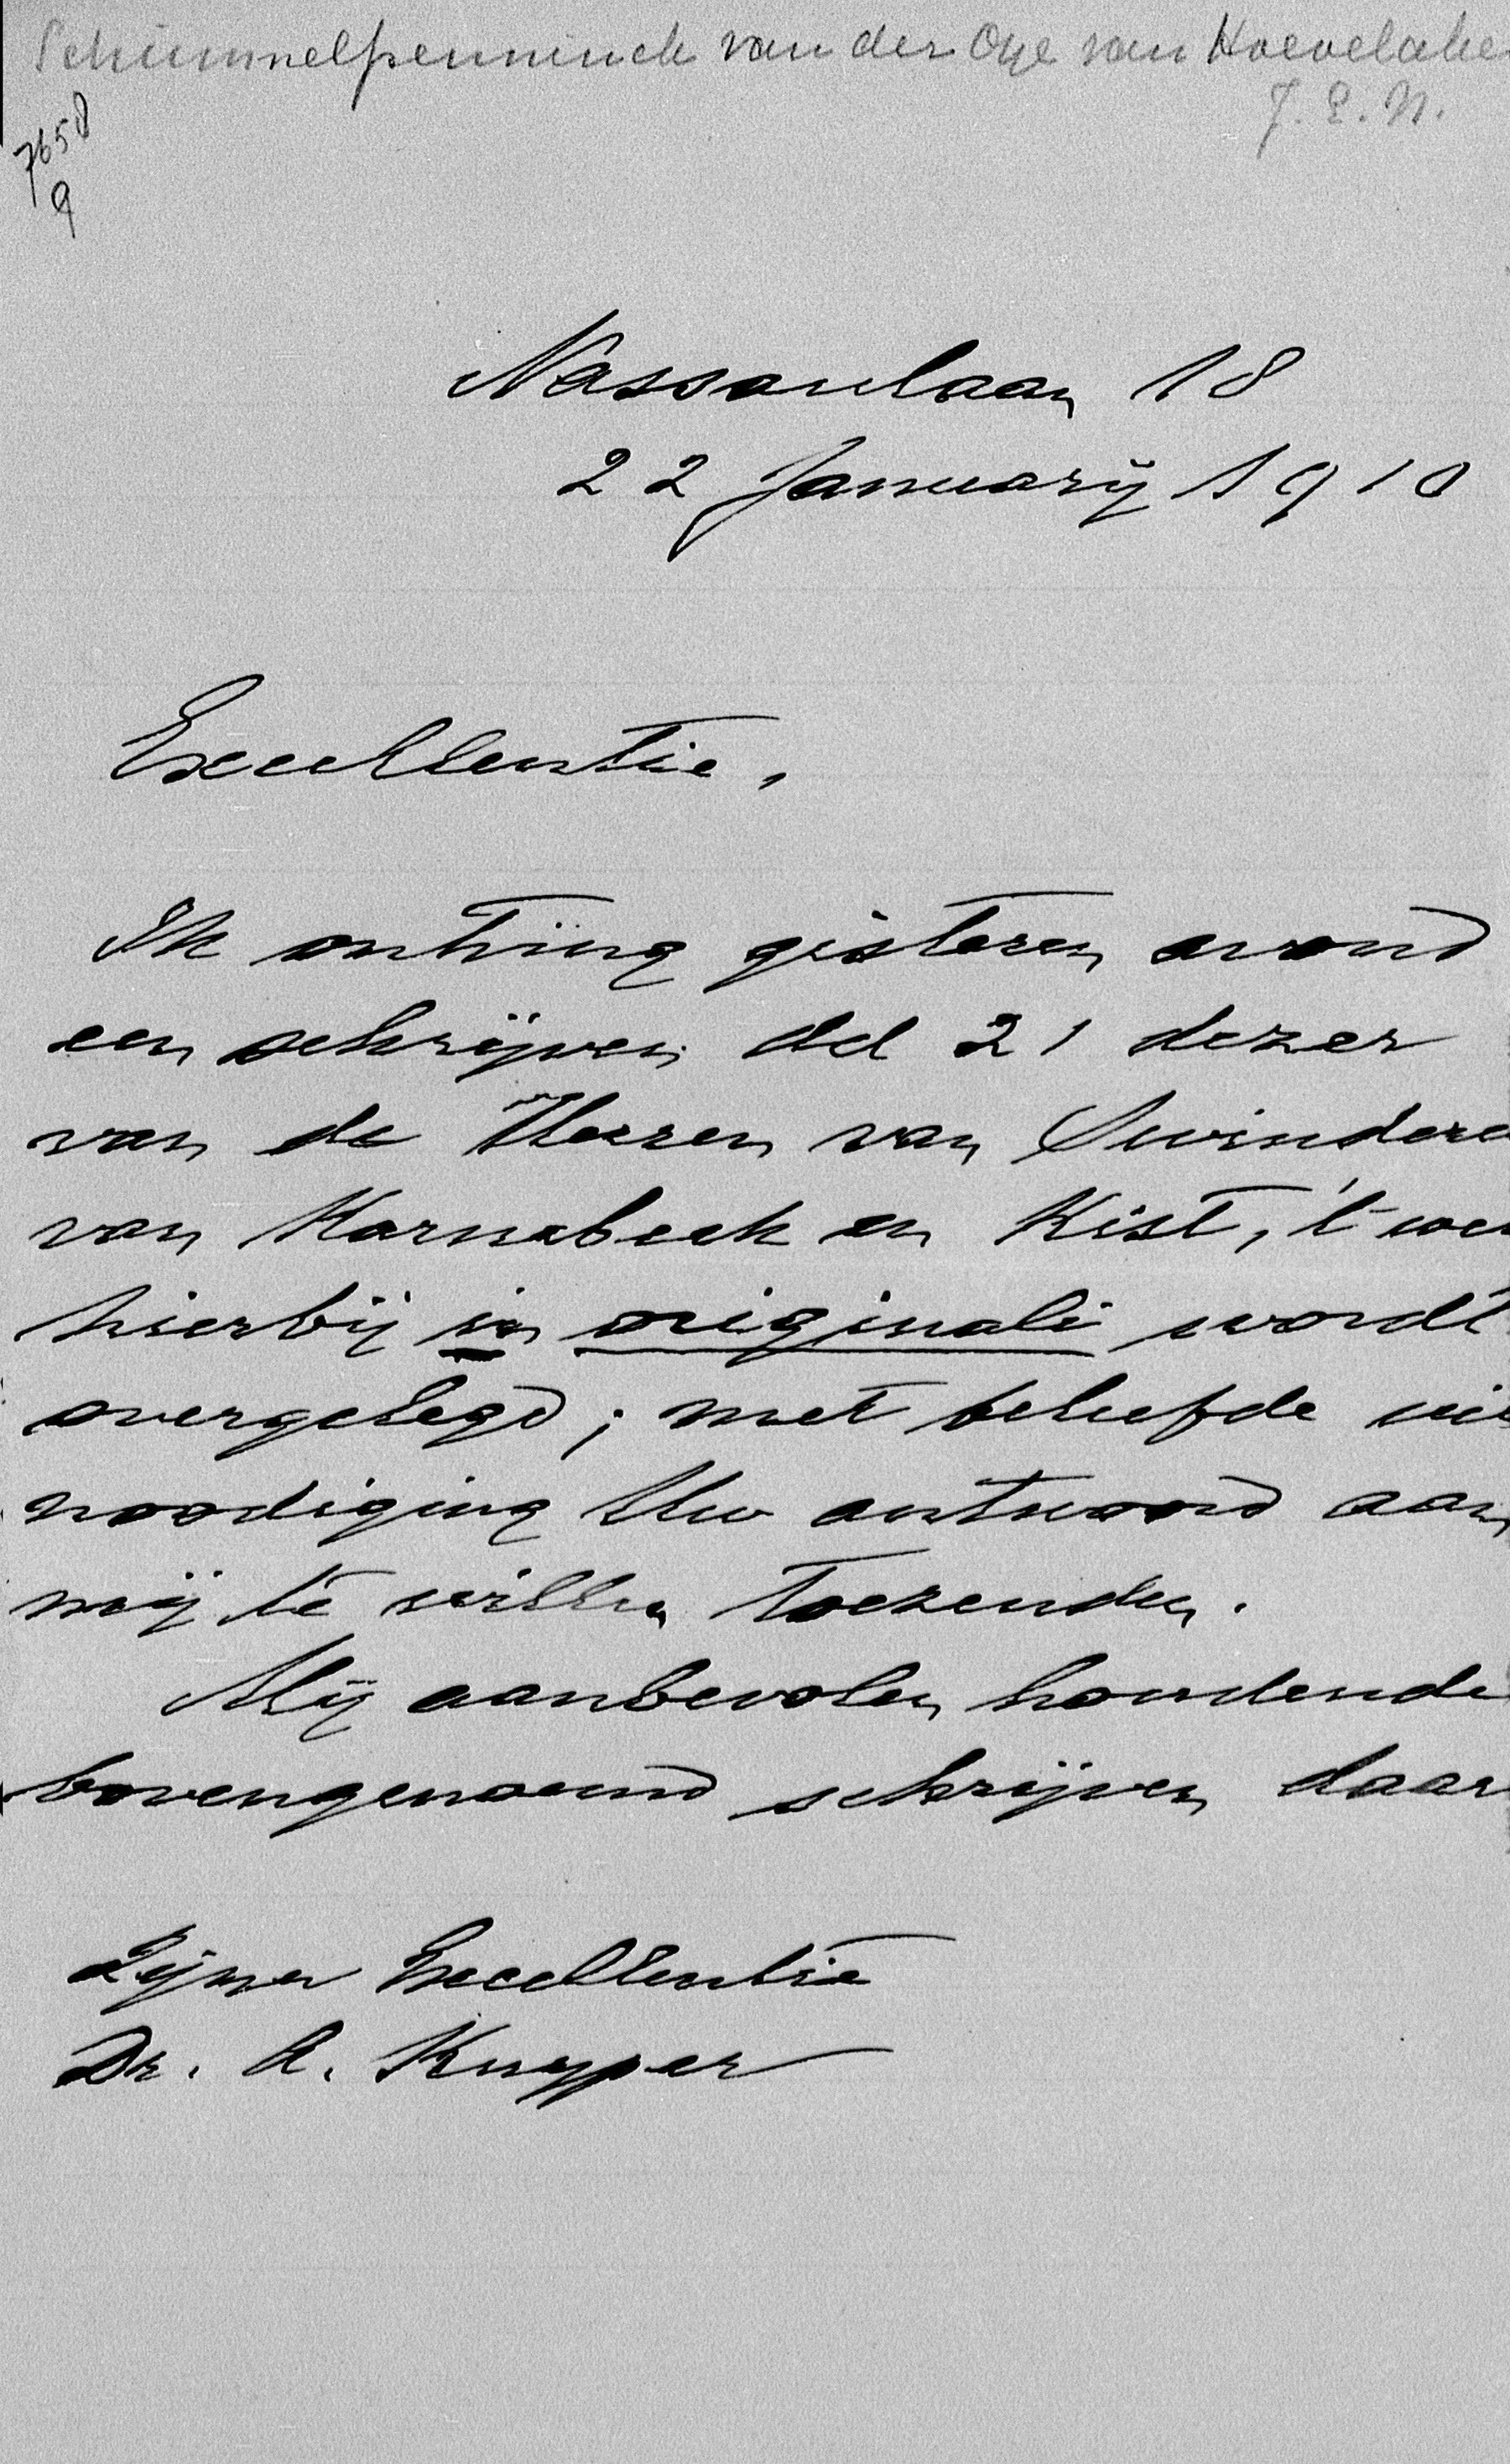 Schimmelpenninck van der Oye van Hoevelake
J. E. N.
7658
9
Nassaulaan 18
22 Januarij 1910
Excellentie,
Ik ontving gisteren avond
een schrijven dd 21 dezer
van de Heeren van Swindere
van Karnebeek en Kist, 't we
hierbij in originali wordt
overgelegd; met beleefde uit
noodiging Uw antwoord aan
mij te willen toezenden.
Mij aanbevolen houdende
bovengenoemd schrijven daar
Zijner Excellentie
Dr. A. Kuyper